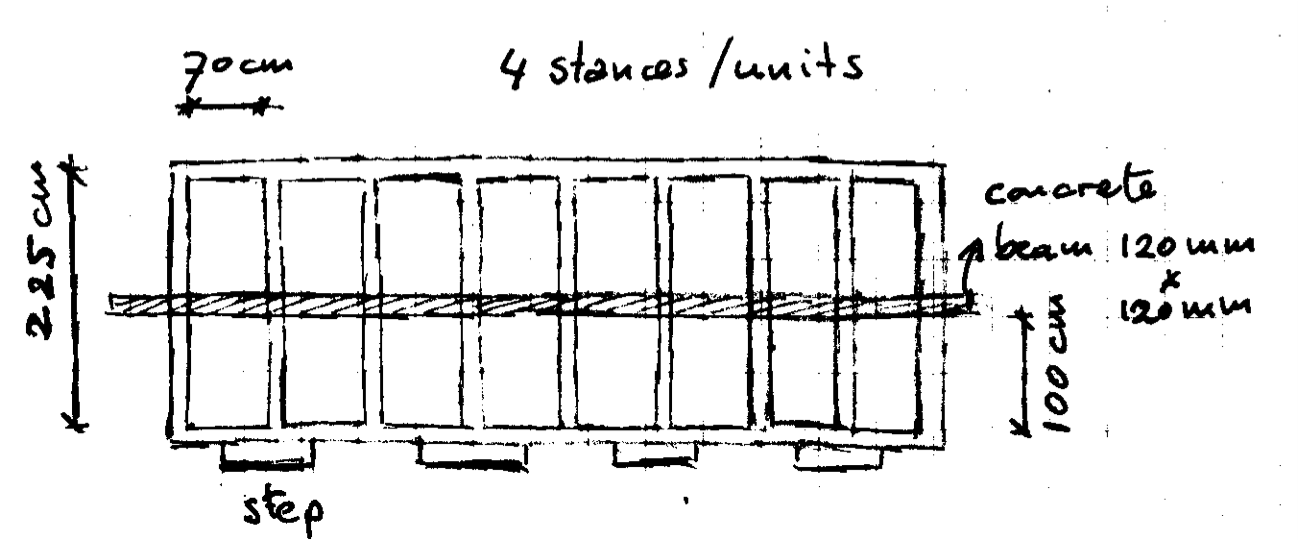 70cm
4 stances/units
225cm
concrete
beam 120mm
x
120mm
100cm
step